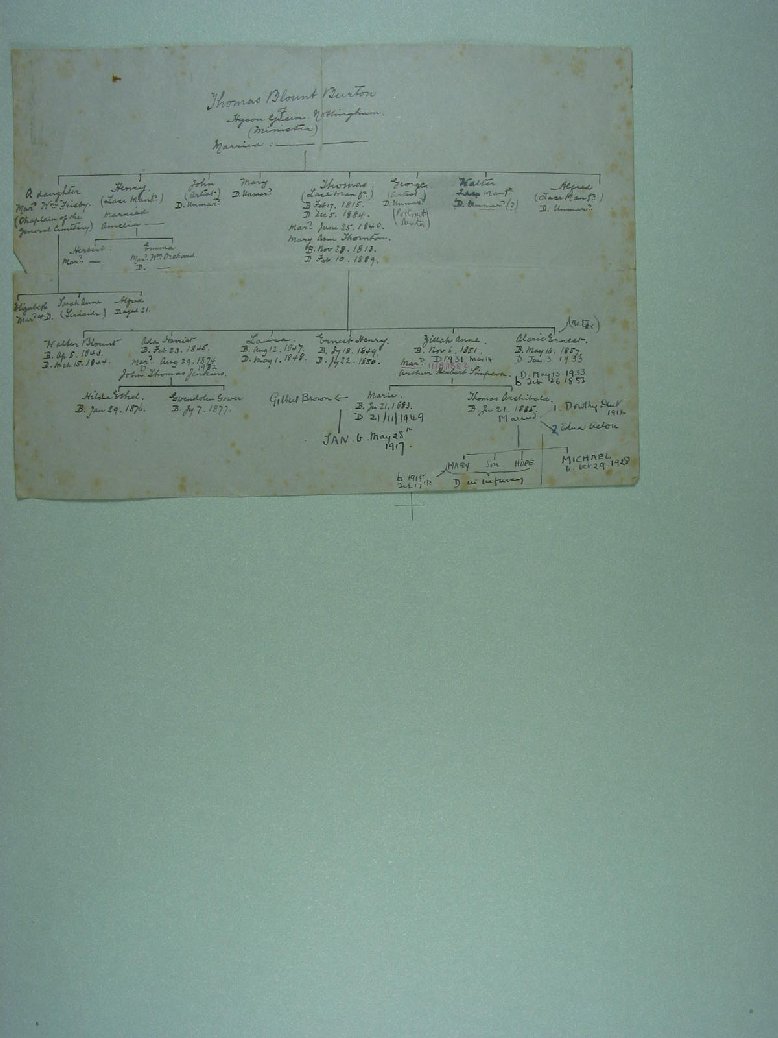 Thomas Blount Burton
of
Hyson Green Nottingham.
(Minister)
Married :
A daughter
Mard Wm Frisby.
(Chaplain of the
General Cemetery)
Henry
(Lace Manfr.)
Married
Amelia
John
(Artist)
D. Unmard
Mary
D. Unmard
Thomas
(Lace Manfr.)
B. Feb 17. 1815.
D. Dec 5. 1884.
Mard June 25. 1840.
Mary Ann Thornton.
B. Nov 28. 1813.
D. Feb 10. 1889.
George
(Artist)
D. Unmard
Walter
Lace Manfr.
D. Unmard (?)
Alfred
(Lace Manfr.)
D. Unmard
Herbert
Mard
Emma
Mard Wm Orchard
D.
Elizabeth
Mard
Sarah Anne
D.
Alfred
D. aged 21.
Walter Blount
B. Ap. 5. 1843
D. 15. 1844.
Ada
B. Feb 23. 1846.
Mard Aug 29. 1874
John Thomas Jenkins.
Laura
B. Aug 12. 1847.
D. May 1. 1848.
Ernest Henry.
B. Jy 18. 1849
D. Jy 22. 1850.
Zillah Anne.
B. Nov 6. 1851.
D. 1938 March
Mard
Arthur Simpson.
Alaric
B. May 16. 1857
D. Jan 3 1933
D. May 13 1933
b Feb 26 1853
Hilda Ethel.
B. Jan 29. 1876.
Gwendolen Gower
B. Jy 7. 1877.
Gilbert Brown
Marie.
B. Jn 21. 1883.
D. 21/11/1949
Thomas Archibald.
B. Jn 21. 1885.
Married
1. Dorothy
1912
2 Edna
JAN G. May 25th
1917.
MARY
Son
HOPE
D in infancy
MICHAEL
b. Oct 29
b 1915